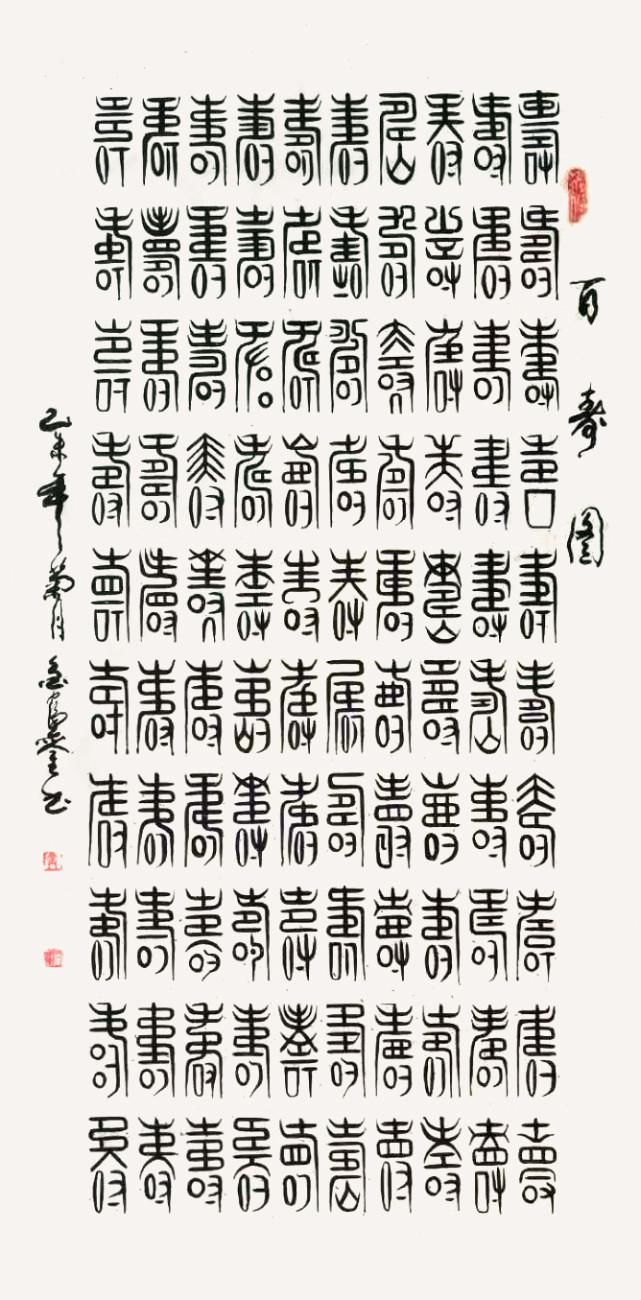 百壽圖
壽壽壽壽壽壽壽壽壽壽
壽壽壽壽壽壽壽壽壽壽
壽壽壽壽壽壽壽壽壽壽
壽壽壽壽壽壽壽壽壽壽
壽壽壽壽壽壽壽壽壽壽
壽壽壽壽壽壽壽壽壽壽
壽壽壽壽壽壽壽壽壽壽
壽壽壽壽壽壽壽壽壽壽
壽壽壽壽壽壽壽壽壽壽
壽壽壽壽壽壽壽壽壽壽
乙未年菊月书